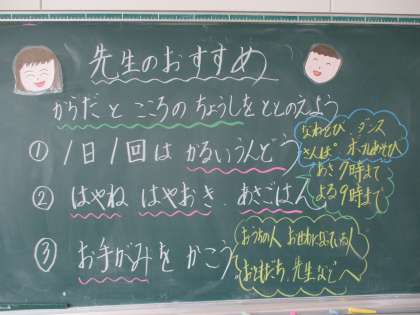 先生のおすすめ
からだ と こころの ちょうしを ととのえよう
① 1日1回は かるいうんどう
なわとび、ダンス
さんぽ、ボールあそび
② はやね はやおき、あさごはん
あさ7時まで
よる9時まで
③ お手がみを かこう
おうちの人、お世話になっている人
おともだち、先生などへ